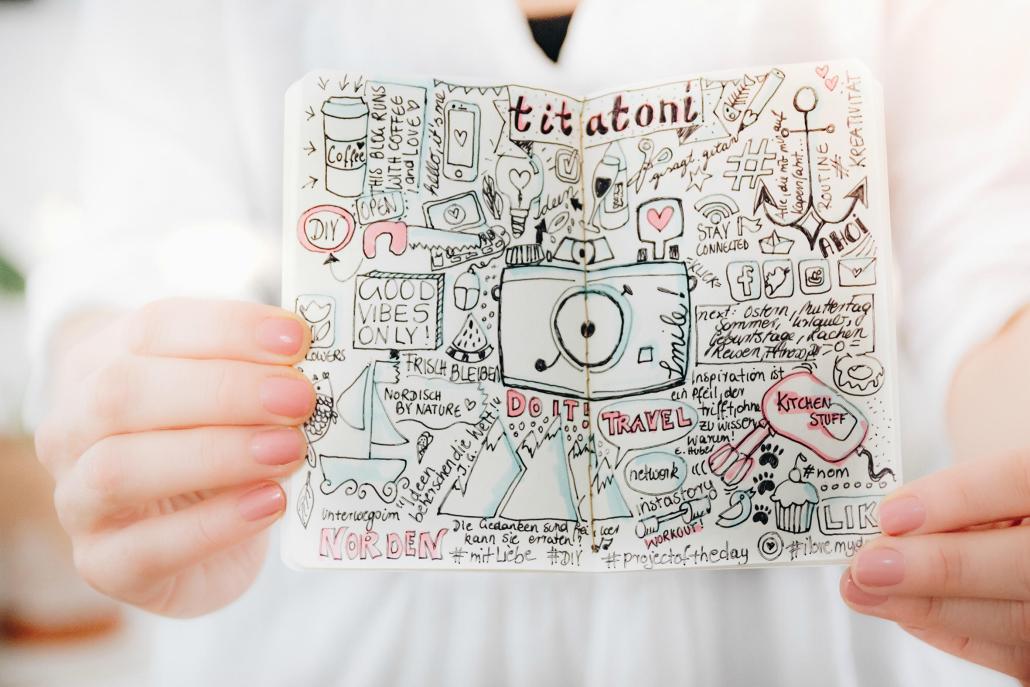 titatoni
Coffee
THIS BLOG RUNS
WITH COFFEE
and LOVE
hello, it's me
OPEN
DIY
GOOD
VIBES
ONLY!
FRISCH BLEIBEN
NORDISCH
BY NATURE
Ideen
beherrschen die Welt
unterwegs im
NORDEN
DO IT!
Die Gedanken sind frei wer
kann sie erraten!?
#mitLiebe #DIY #projectoftheday
smile!
gesagt, getan
#
Alle, die mit uns auf
Kaperfahrt...
ROUTINE
#
KREATIVITÄT
AHOI
STAY
CONNECTED
f
next: Ostern, Muttertag
Sommer, Urlaub,
Geburtstage, Kochen
Reisen,
Inspiration ist
ein Pfeil, der
trifft, ohne
zu wissen
warum!
E. Huber
TRAVEL
KITCHEN
STUFF
network
instastory
WORKOUT
#nom
LIK
#ilovemyd